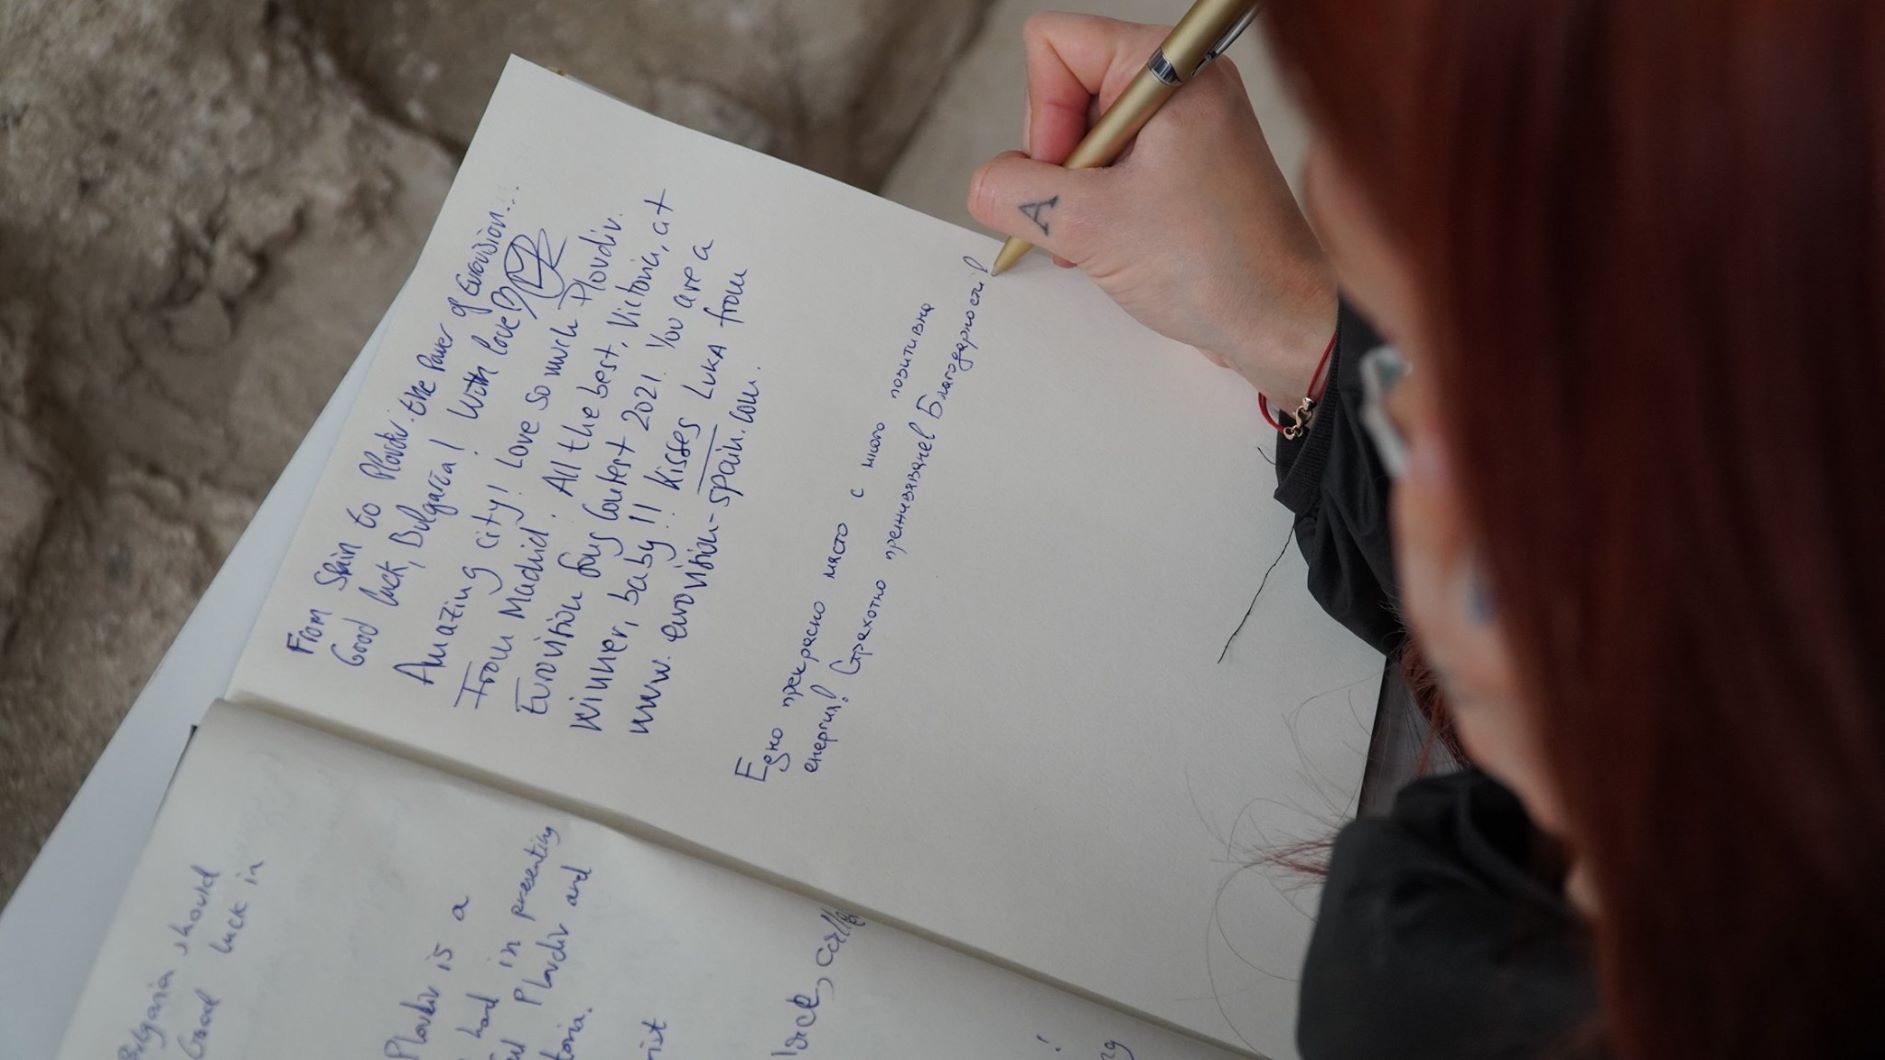 From Spain to Plovdiv. the Power of Eurovision...
Good luck, Bulgaria! With love!
Amazing city! Love so much Plovdiv.
From Madrid. All the best, Victoria, at
Eurovision Song Contest 2021. You are a
winner, baby!! Kisses LUKA from
www.eurovision-spain.com.
Едно прекрасно място с много позитивна
енергия! Страхотно преживяване! Благодарности!
A
Bulgaria should
Good luck in
Plovdiv is a
hard in presenting
Plovdiv and